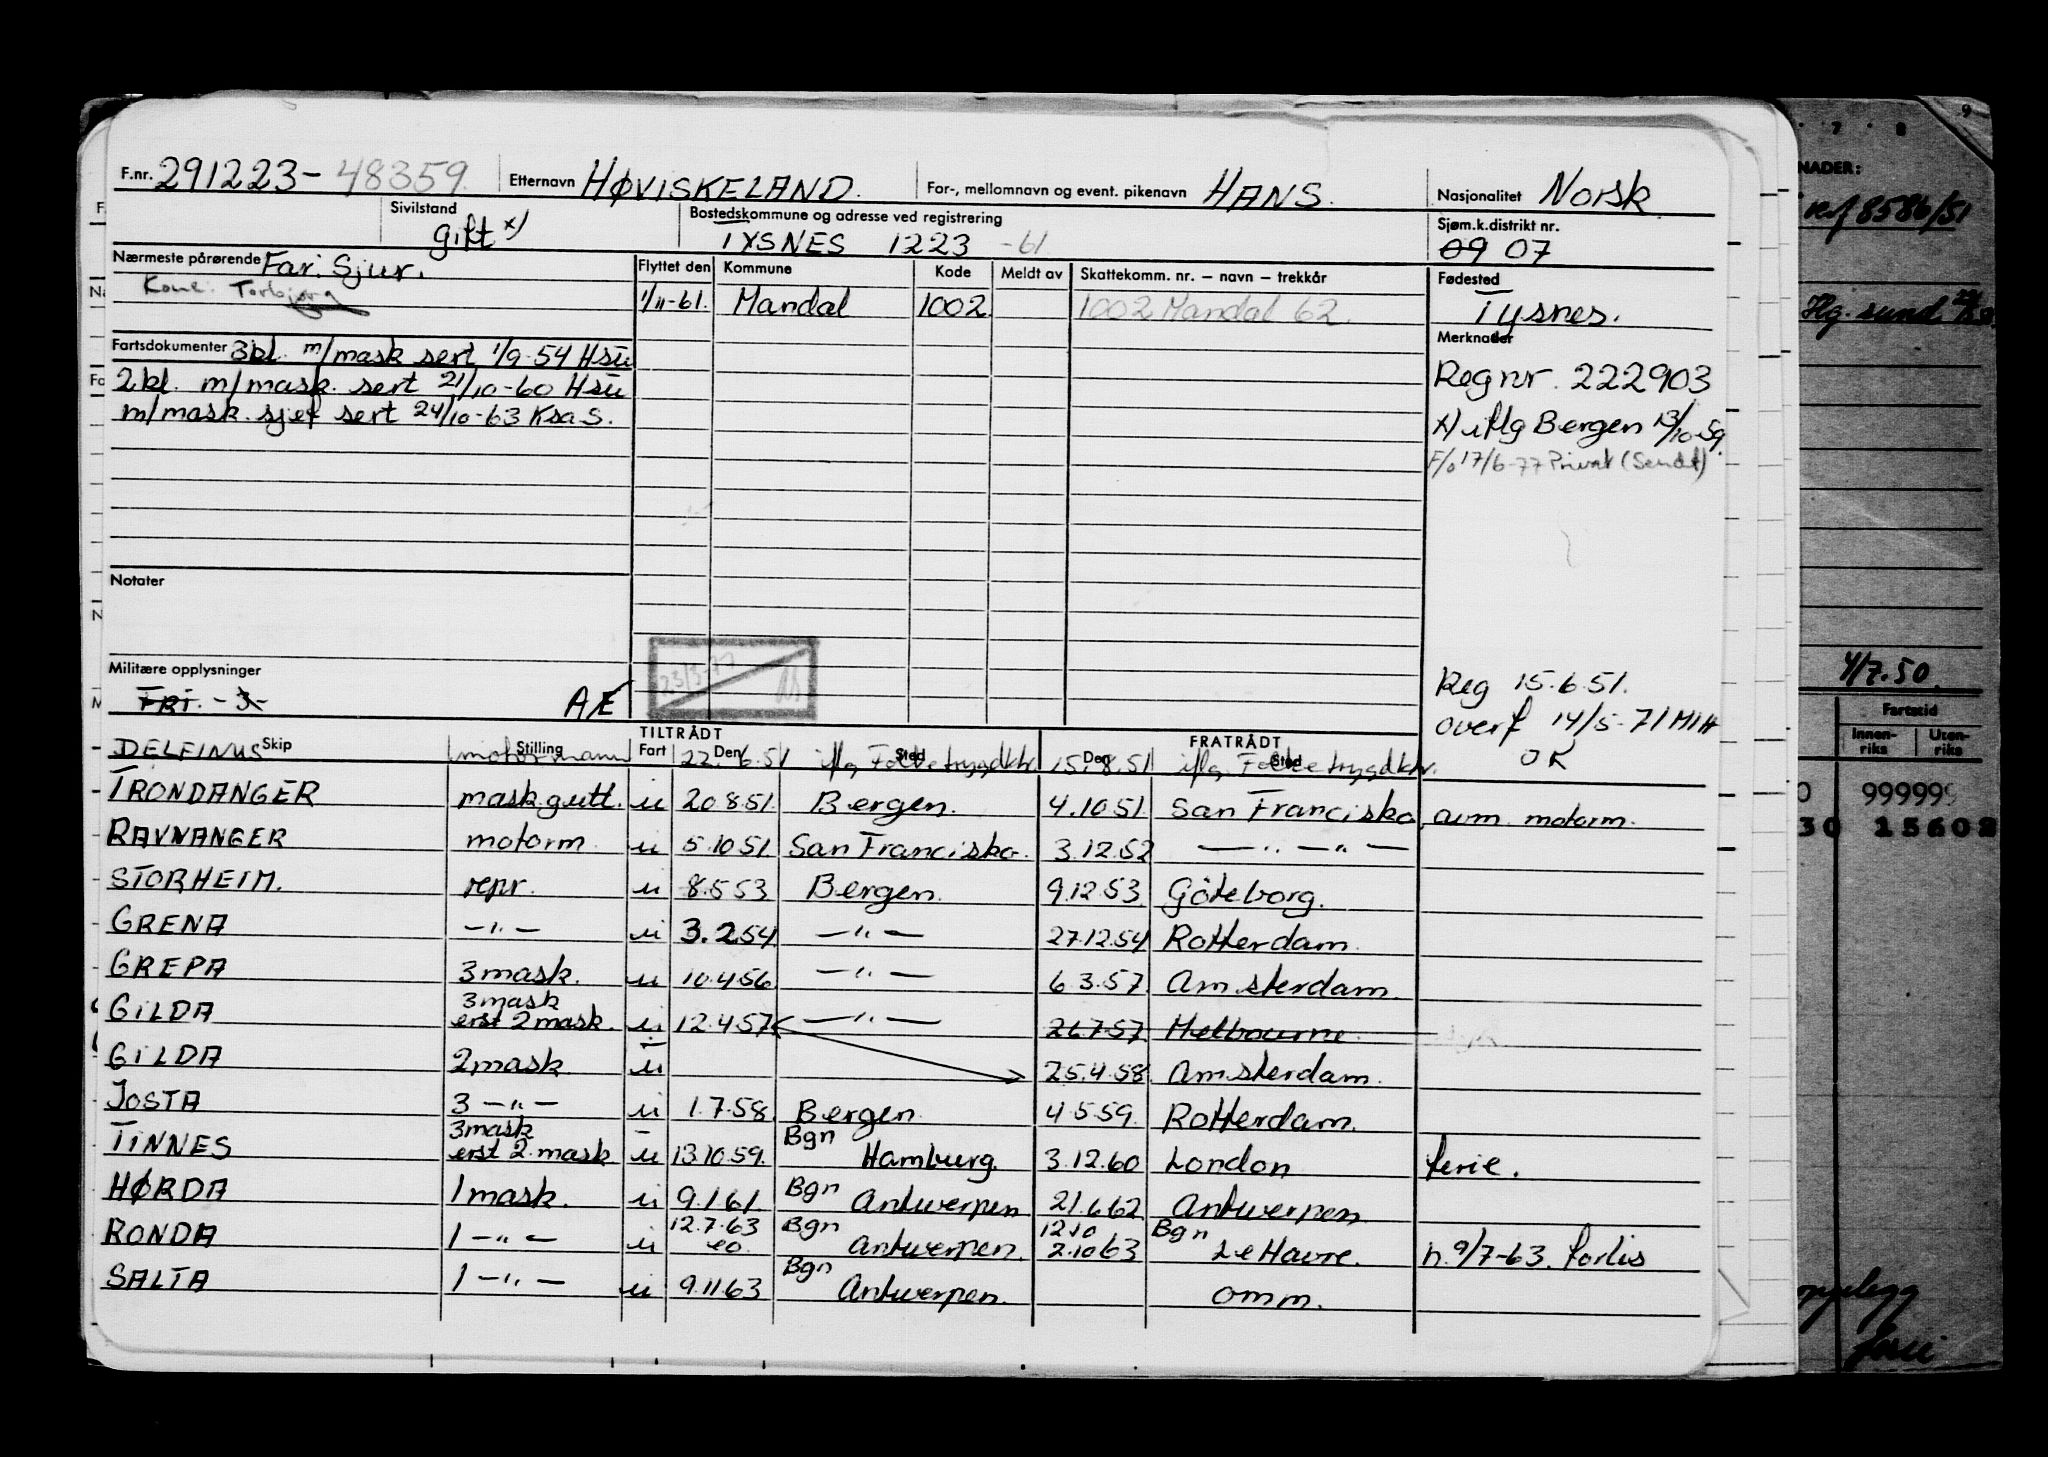 F.nr. 291223-48359. Etternavn HØVISKELAND. For-, mellomnavn og event. pikenavn HANS. Nasjonalitet Norsk
Sivilstand gift x) Bostedskommune og adresse ved registrering TYSNES 1223 -61 Sjøm.k.distrikt nr. 09 07
Nærmeste pårørende Far: Sjur. Flyttet den Kommune Kode Meldt av Skattekomm. nr. – navn – trekkår Fødested
Kone: Torbjørg 1/11-61. Mandal 1002 1002 Mandal 62. Tysnes.
Fartsdokumenter 3kl. m/mask sert 1/9-54 Hsu Merknader
2kl. m/mask. sert 21/10-60 Hsu Regnr. 222903
m/mask. sjef sert 24/10-63 KsaS. x) iflg Bergen 13/10-59
F/o 17/6-77 Privat (Sendt)
Notater
23/3-77
Militære opplysninger Reg 15.6.51.
FRI. -3- AE overf 14/5-71 MIH
OK
TILTRÅDT FRATRÅDT
Skip Stilling Fart Den Sted Den Sted
DELFINUS motormann 22.6.51 iflg Folketrygdktr. 15.8.51 iflg Folketrygdktr.
TRONDANGER mask.gutt. u 20.8.51. Bergen. 4.10.51. San Francisko avm. motorm.
RAVNANGER motorm. u 5.10.51. San Francisko. 3.12.52 — " — " —
STORHEIM. repr. u 8.5.53 Bergen. 9.12.53. Göteborg.
GRENA — " — u 3.2.54 — " — 27.12.54 Rotterdam.
GREPA 3mask. u 10.4.56 — " — 6.3.57. Amsterdam.
GILDA 3mask erst 2mask. u 12.4.57 — " — 26.7.57 Melbourne.
GILDA 2mask u 25.4.58. Amsterdam.
JOSTA 3 — " — u 1.7.58. Bergen. 4.5.59. Rotterdam.
TINNES 3mask erst 2.mask u 13.10.59. Bgn Hamburg. 3.12.60 London ferie.
HØRDA 1mask. u 9.1.61. Bgn Antwerpen 21.6.62 Antwerpen
RONDA 1 — " — u 12.7.63 eo. Bgn Antwerpen. 12.10 2.10.63 Bgn Le Havre. h. 9/7-63. forlis
SALTA 1 — " — u 9.11.63 Bgn Antwerpen. omm.
7 8 9
NADER:
ref 8586/51
Hg. sund
4/7.50
Fartstid
Innen-riks Uten-riks
0 999999
30 15602